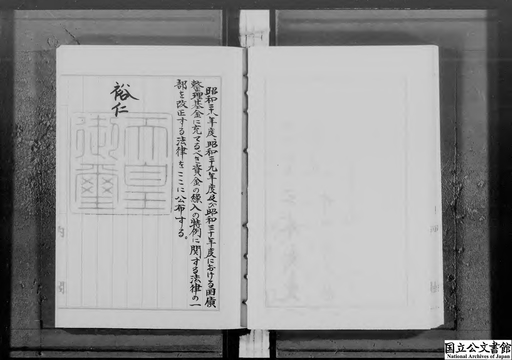 昭和二十八年度、昭和二十九年度及び昭和三十年度における国債
整理基金に充てるべき資金の繰入の特例に関する法律の一
部を改正する法律をここに公布する。
裕仁
天皇
御璽
国立公文書館
National Archives of Japan